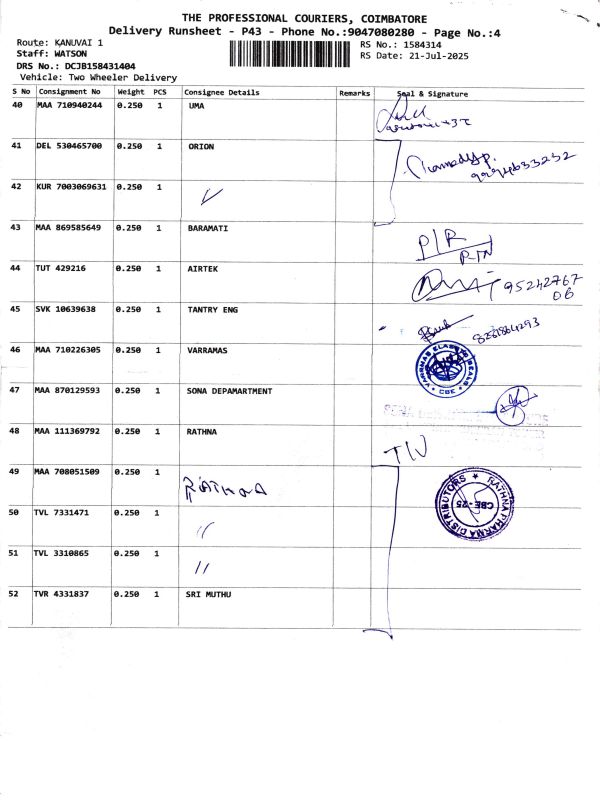 THE PROFESSIONAL COURIERS, COIMBATORE
Delivery Runsheet - P43 - Phone No.:9047080280 - Page No.:4
Route: KANUVAI 1
Staff: WATSON
DRS No.: DCJB158431404
Vehicle: Two Wheeler Delivery
RS No.: 1584314
RS Date: 21-Jul-2025
S No Consignment No Weight PCS Consignee Details Remarks Seal & Signature
40 MAA 710940244 0.250 1 UMA
41 DEL 530465700 0.250 1 ORION
42 KUR 7003069631 0.250 1
43 MAA 869585649 0.250 1 BARAMATI
P/R
P-IN
44 TUT 429216 0.250 1 AIRTEK
95242767
06
45 SVK 10639638 0.250 1 TANTRY ENG
46 MAA 710226305 0.250 1 VARRAMAS
VARRAMAS ELASTIC SEALS
CBE
47 MAA 870129593 0.250 1 SONA DEPAMARTMENT
48 MAA 111369792 0.250 1 RATHNA
49 MAA 708051509 0.250 1 RATHNA
RATHNA PHARMA DISTRIBUTORS
CBE-25
50 TVL 7331471 0.250 1 "
51 TVL 3310865 0.250 1 "
52 TVR 4331837 0.250 1 SRI MUTHU